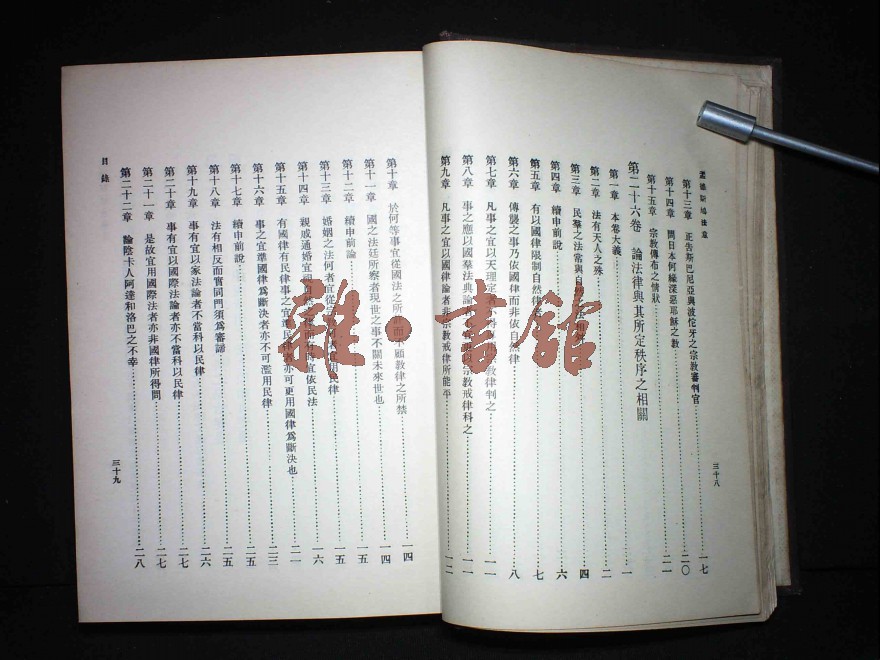 孟德斯鳩法意
第十三章 正告斯巴尼亞與波佗牙之宗教審判官 一七
第十四章 問日本何緣深惡耶穌之教 二〇
第十五章 宗教傳布之情狀 二一
第二十六卷 論法律與其所定秩序之相關
第一章 本卷大義 一
第二章 法有天人之殊 二
第三章 民羣之法常與自然 四
第四章 續申前說 六
第五章 有以國律限制自然律者 七
第六章 傳襲之事乃依國律而非依自然律 八
第七章 凡事之宜以天理定者不 教律判之 一一
第八章 事之應以國羣法典論 以宗教戒律科之 一一
第九章 凡事之宜以國律論者非宗教戒律所能平 一二
三十八
第十章 於何等事宜從國法之所許而不顧教律之所禁 一四
第十一章 國之法廷所察者現世之事不關未來世也 一四
第十二章 續申前論 一五
第十三章 婚姻之法何者宜從 民律 一六
第十四章 親戚通婚宜 自然 宜依民法 二一
第十五章 有國律有民律事之宜 民律者亦可更用國律爲斷決也 二三
第十六章 事之宜準國律爲斷決者亦不可濫用民律 二三
第十七章 續申前說 二五
第十八章 法有相反而實同門須爲審諦 二五
第十九章 事有宜以家法論者不當科以民律 二六
第二十章 事有宜以國際法論者亦不當科以民律 二七
第二十一章 是故宜用國際法者亦非國律所得問 二七
第二十二章 論陰卡人阿達和洛巴之不幸 二八
目錄
三十九
雜·書館